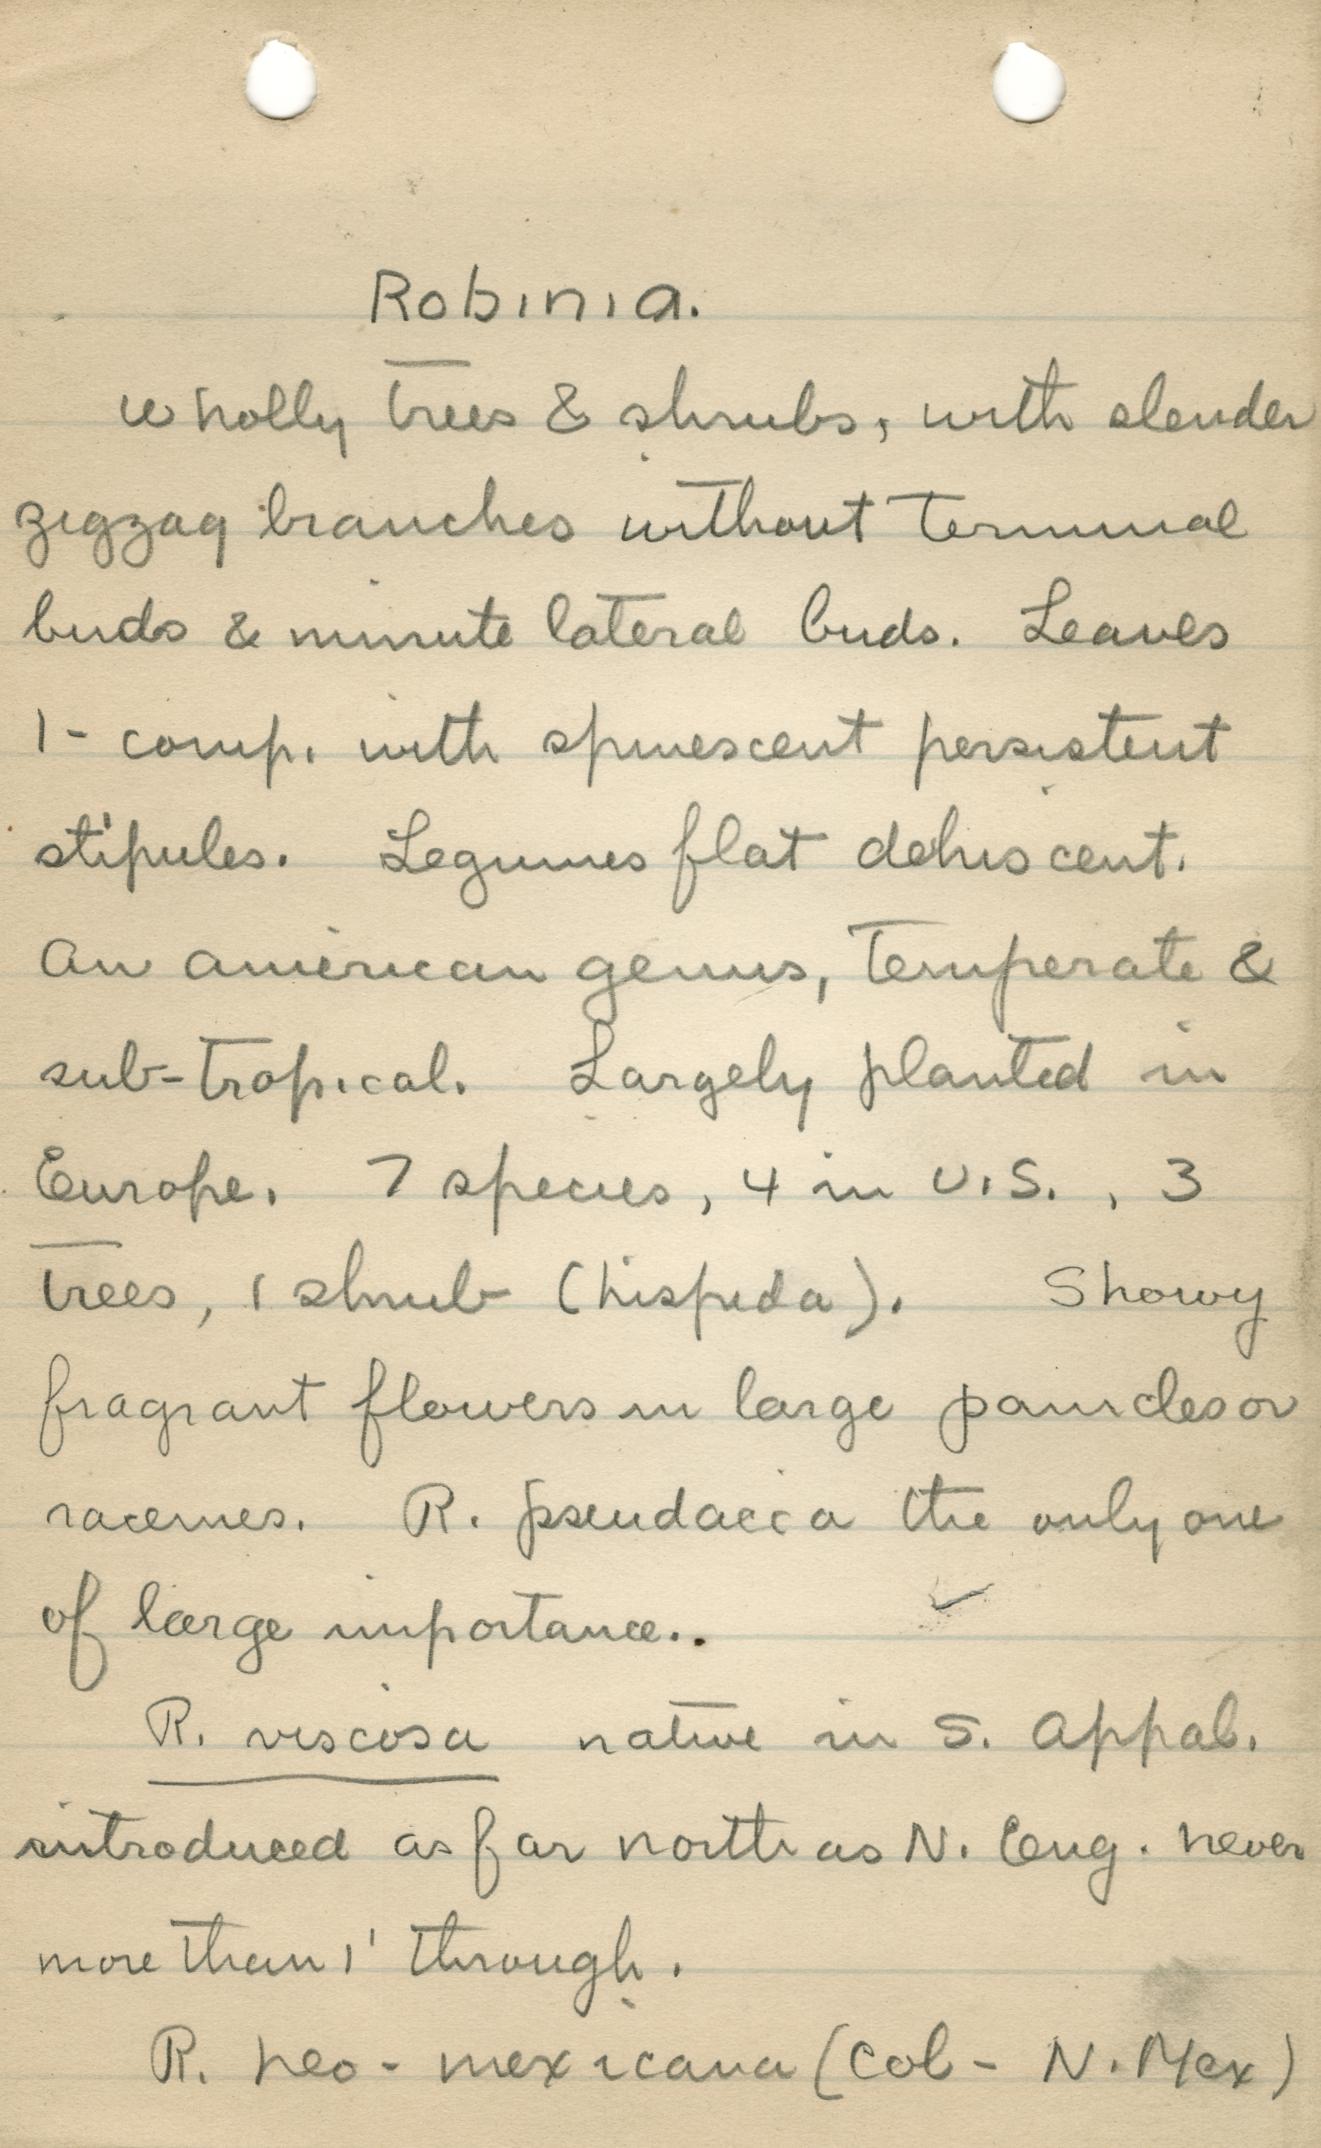 Robinia.
wholly trees & shrubs, with slender
zigzag branches without terminal
buds & minute lateral buds. Leaves
1- comp. with spinescent persistent
stipules. Legumes flat dehiscent.
An american genus, temperate &
sub-tropical. Largely planted in
Europe. 7 species, 4 in U.S., 3
trees, 1 shrub (hispida). Showy
fragrant flowers in large panicles or
racemes. R. pseudacica the only one
of large importance..
R. viscosa native in S. Appal.
introduced as far north as N. Eng. never
more than 1' through.
R. neo-mexicana (Col - N. Mex)